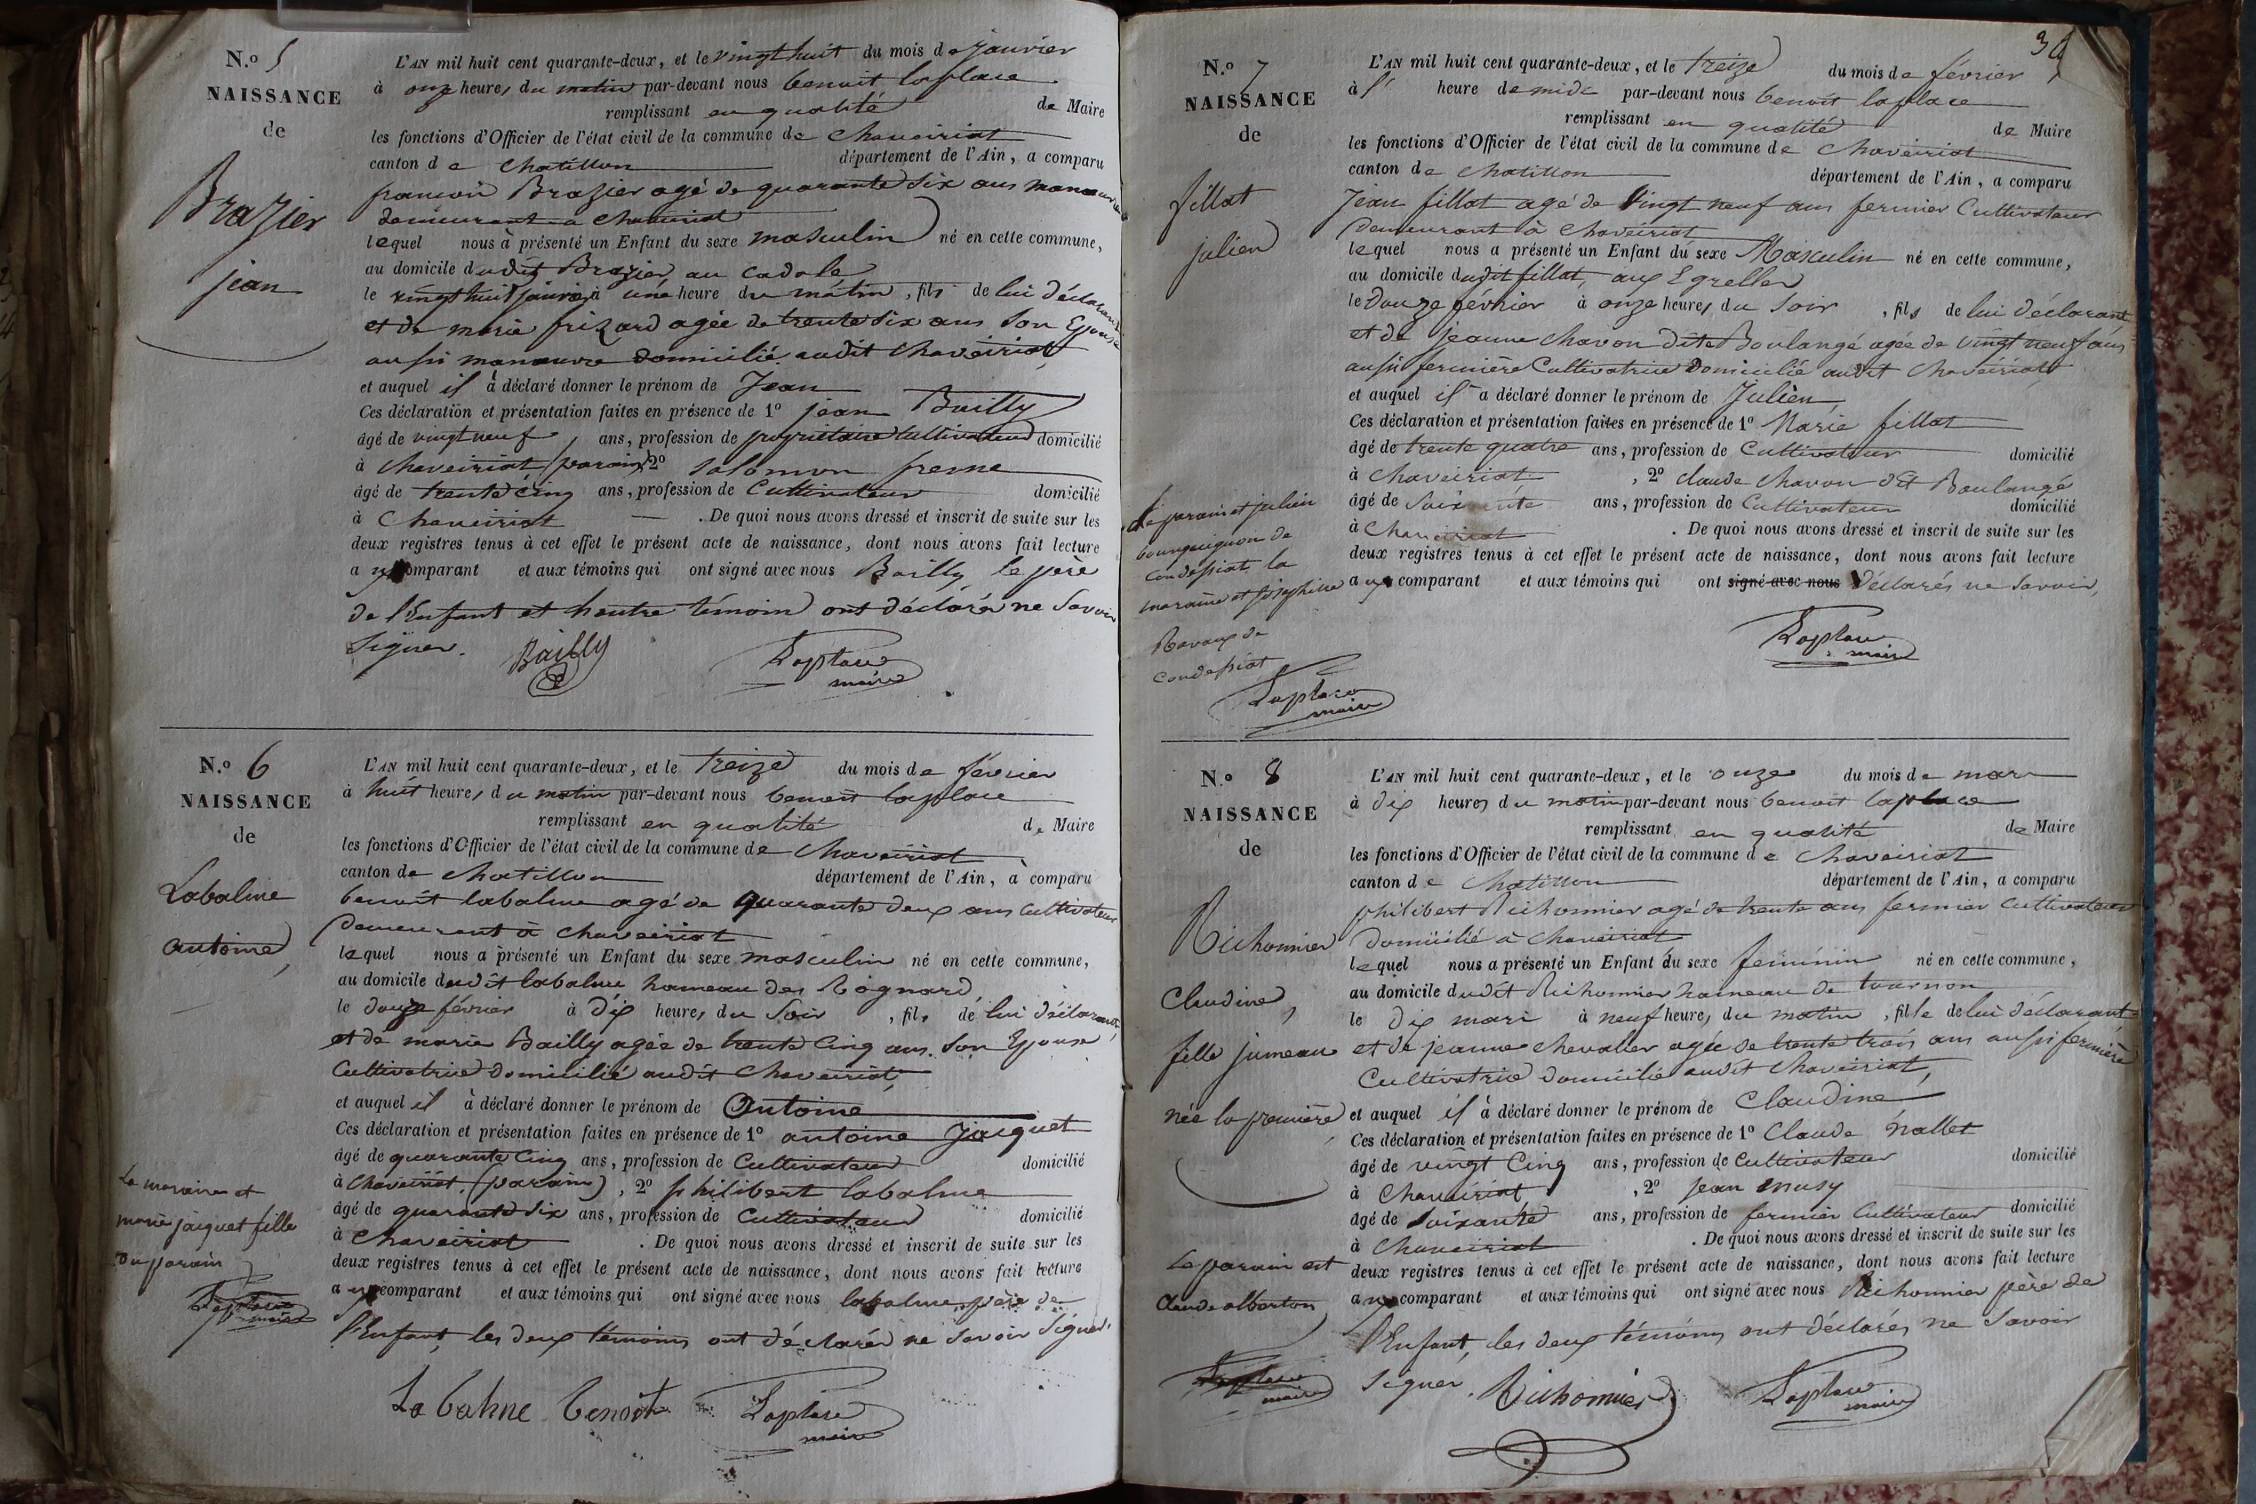 N.o 5
NAISSANCE
de
Brazier
jean
L'AN mil huit cent quarante-deux, et le vingt huit du mois de janvier
à onze heures du matin par-devant nous benoit laplace
remplissant en qualité de Maire
les fonctions d'Officier de l'état civil de la commune de chaveiriat
canton de chatillon département de l'Ain, a comparu
francois Brazier agé de quarante six ans manœuvre
demeurant a chaveiriat
lequel nous à présenté un Enfant du sexe masculin né en cette commune,
au domicile dudit Brazier au cadole
le vingt huit janvier à une heure du matin, fils de lui déclarant
et de marie frizard agée de trente six ans son Epouse
aussi manœuvre domicilié audit chaveiriat,
et auquel il à déclaré donner le prénom de Jean
Ces déclaration et présentation faites en présence de 1º jean Bailly
âgé de vingt neuf ans, profession de propriétaire cultivateur domicilié
à chaveiriat (parain) 2º salomon fresne
âgé de trente cinq ans, profession de Cultivateur domicilié
à Chaveiriat . De quoi nous avons dressé et inscrit de suite sur les
deux registres tenus à cet effet le présent acte de naissance, dont nous avons fait lecture
a comparant et aux témoins qui ont signé avec nous Bailly, le père
de l'Enfant et l'autre témoin ont déclarés ne Savoir
Signer.
Bailly
Laplace
maire
N.o 6
NAISSANCE
de
Labalme
antoine,
La maraine et
marie jacquet fille
du parain
Laplace
maire
L'AN mil huit cent quarante-deux, et le treize du mois de février
à huit heures du matin par-devant nous benoit laplace
remplissant en qualité de Maire
les fonctions d'Officier de l'état civil de la commune de chaveiriat
canton de chatillon département de l'Ain, à comparu
benoit labalme agé de quarante deux ans Cultivateur
demeurant à chaveiriat
lequel nous a présenté un Enfant du sexe masculin né en cette commune,
au domicile dudit labalme hameau des Rognard
le douze février à dix heures du Soir, fils de lui déclarant
et de marie Bailly agée de trente Cinq ans. Son Epouse,
Cultivatrice domicilié audit Chaveiriat,
et auquel il à déclaré donner le prénom de Antoine
Ces déclaration et présentation faites en présence de 1º antoine Jacquet
âgé de quarante Cinq ans, profession de Cultivateur domicilié
à Chaveiriat, (parain), 2º philibert labalme
âgé de quarante six ans, profession de Cultivateur domicilié
à Chaveiriat . De quoi nous avons dressé et inscrit de suite sur les
deux registres tenus à cet effet le présent acte de naissance, dont nous avons fait lecture
a comparant et aux témoins qui ont signé avec nous labalme père de
l'Enfant, les deux témoins ont déclarés ne Savoir Signer.
La balme benoit
Laplace
maire
34
N.o 7
NAISSANCE
de
fillat
julien
Le parain et julien
bourguignon de
condessiat la
maraine et josephine
Ravaux de
condessiat
Laplace
maire
L'AN mil huit cent quarante-deux, et le treize du mois de février
à l' heure de midi par-devant nous benoit laplace
remplissant en qualité de Maire
les fonctions d'Officier de l'état civil de la commune de chaveiriat
canton de chatillon département de l'Ain, a comparu
Jean fillat agé de Vingt neuf ans fermier Cultivateur
demeurant à chaveiriat
lequel nous a présenté un Enfant du sexe Masculin né en cette commune,
au domicile dudit fillat, aux Egrelles
le douze février à onze heures du Soir, fils de lui déclarant
et de jeanne chavon dite Boulangé agée de vingt neuf ans
aussi fermière Cultivatrice Domicilié audit Chaveiriat,
et auquel il a déclaré donner le prénom de Julien
Ces déclaration et présentation faites en présence de 1º Marie fillat
âgé de trente quatre ans, profession de Cultivateur domicilié
à chaveiriat, 2º claude chavon dit Boulangé
âgé de Soixante ans, profession de Cultivateur domicilié
à Chaveiriat . De quoi nous avons dressé et inscrit de suite sur les
deux registres tenus à cet effet le présent acte de naissance, dont nous avons fait lecture
a comparant et aux témoins qui ont signé avec nous déclarés ne Savoir,
Laplace
maire
N.o 8
NAISSANCE
de
Richonnier
Claudine,
fille jumeau
née la première
Le parain est
Claude alborton
Laplace
maire
L'AN mil huit cent quarante-deux, et le onze du mois de mars
à dix heures du matin par-devant nous benoit laplace
remplissant en qualité de Maire
les fonctions d'Officier de l'état civil de la commune de chaveiriat
canton de chatillon département de l'Ain, a comparu
philibert Richonnier agé de trente ans fermier cultivateur
domicilié à chaveiriat
lequel nous a présenté un Enfant du sexe feminin né en cette commune,
au domicile dudit Richonnier hameau de tournon
le dix mars à neuf heures du matin, fille de lui déclarant
et de jeanne chevalier agée de trente trois ans aussi fermière
Cultivatrice domicilié audit Chaveiriat,
et auquel il à déclaré donner le prénom de Claudine
Ces déclaration et présentation faites en présence de 1º Claude nallet
âgé de vingt Cinq ans, profession de Cultivateur domicilié
à Chaveiriat, 2º jean musy
âgé de Soixante ans, profession de fermier Cultivateur domicilié
à Chaveiriat . De quoi nous avons dressé et inscrit de suite sur les
deux registres tenus à cet effet le présent acte de naissance, dont nous avons fait lecture
a comparant et aux témoins qui ont signé avec nous Richonnier père de
l'Enfant, les deux témoins ont déclarés ne Savoir
Signer.
Richonnier
Laplace
maire